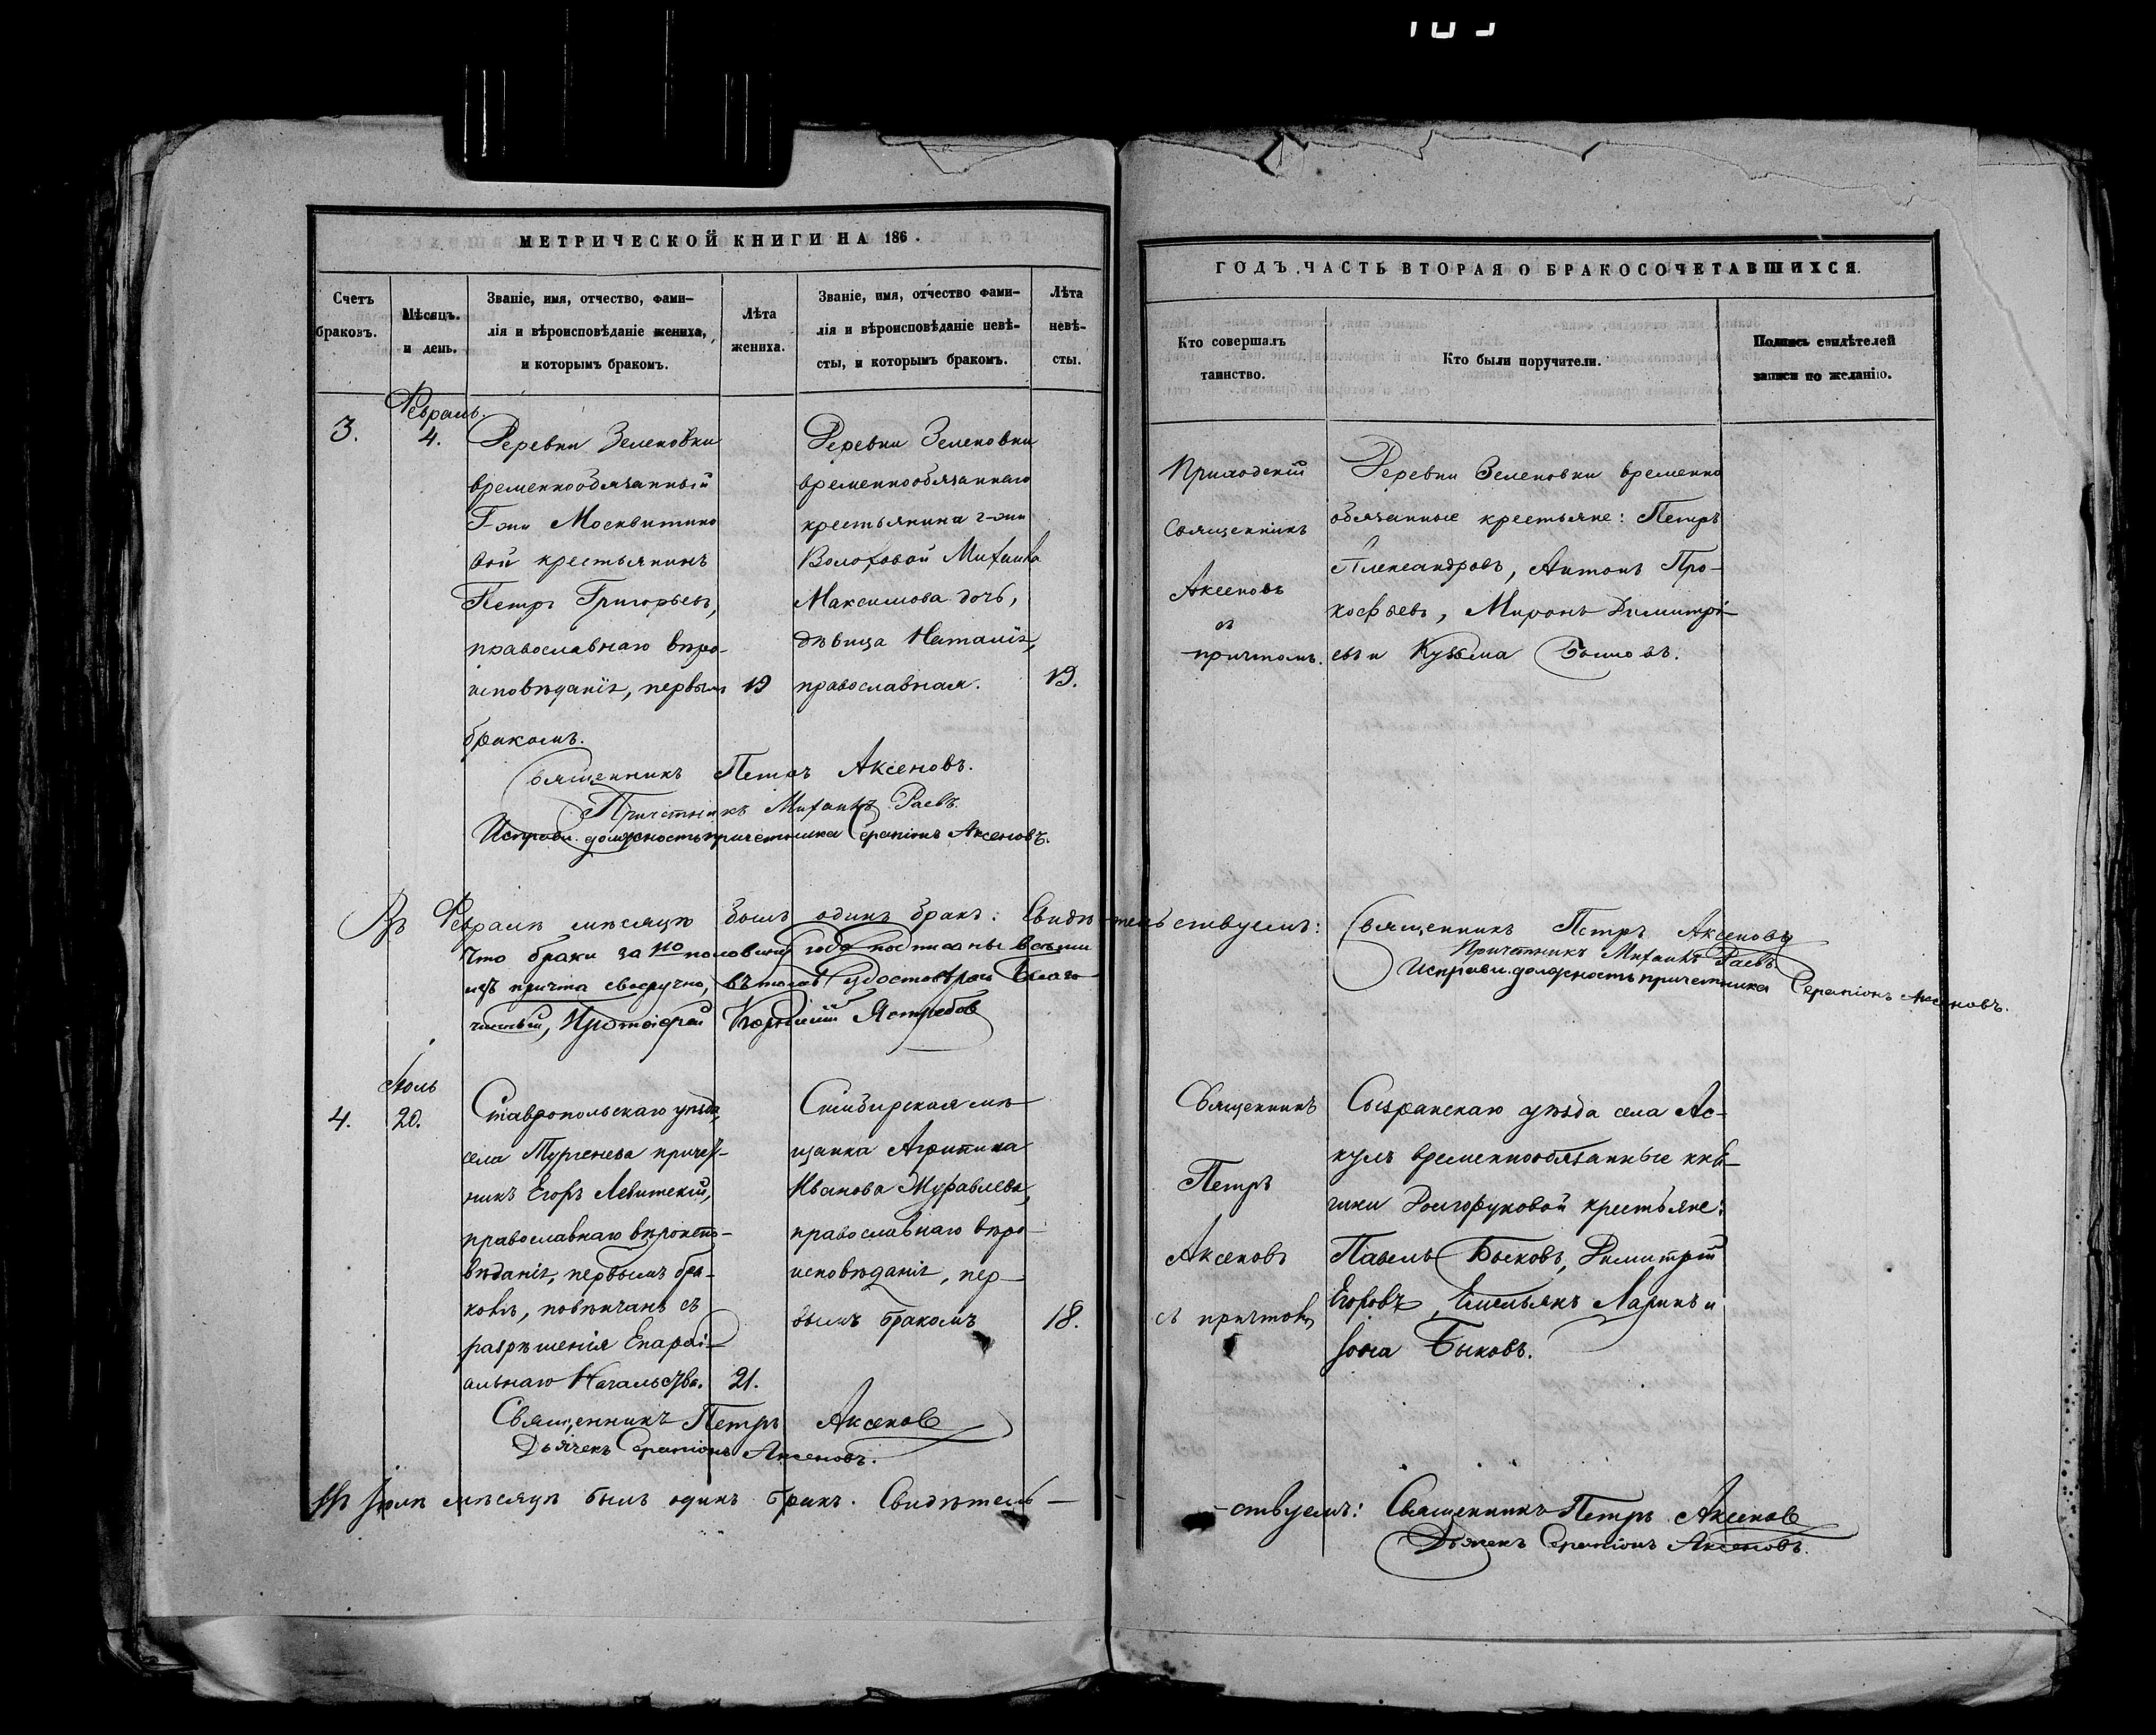 МЕТРИЧЕСКОЙ КНИГИ НА 186 .
Счетъ
браковъ.
Мѣсяцъ.
и день.
Званіе, имя, отчество, фами-
лія и вѣроисповѣданіе жениха,
и которымъ бракомъ.
Лѣта
жениха.
Званіе, имя, отчество фами-
лія и вѣроисповѣданіе невѣ-
сты, и которымъ бракомъ.
Лѣта
невѣ-
сты.
3.
Февраль.
4.
Деревни Зеленовки
временнообязанный
Г-жи Москвитино
вой крестьянинъ
Петръ Григорьевъ,
православнаго вѣро-
исповѣданія, первымъ
бракомъ.
19
Деревни Зеленовки
временнообязаннаго
крестьянина г-жи
Волоховой Михаила
Максимова дочь,
дѣвица Наталія,
православная.
19.
Священникъ Петръ Аксеновъ.
Причетникъ Михаилъ Раевъ.
Исправл. должность причетника Серапіонъ Аксеновъ.
Въ Февралѣ мѣсяцѣ былъ одинъ бракъ: Свидѣ-
что браки за 1ю половину года подписаны всѣми
изъ причта своеручно, въ томъ удостовѣряю Благо-
чинный, Протоіерей Ястребовъ
4.
Іюль
20.
Ставропольскаго уѣзда,
села Тургенева причет-
никъ Егоръ Левитскій,
православнаго вѣроиспо-
вѣданія, первымъ бра-
комъ, повѣнчанъ съ
разрѣшенія Епархі-
альнаго Начальства.
21.
Симбирская мѣ-
щанка Агрипина
Иванова Журавлева,
православнаго вѣро-
исповѣданія, пер-
вымъ бракомъ
18.
Священникъ Петръ Аксеновъ
Дьячекъ Серапіонъ Аксеновъ.
Въ Іюлѣ мѣсяцѣ былъ одинъ бракъ. Свидѣтель-
ГОДЪ. ЧАСТЬ ВТОРАЯ О БРАКОСОЧЕТАВШИХСЯ.
Кто совершалъ
таинство.
Кто были поручители.
Подпись свидѣтелей
записи по желанію.
Приходскій
Священникъ
Аксеновъ
съ
причтомъ.
Деревни Зеленовки временно
обязанные крестьяне: Петръ
Александровъ, Антонъ Про-
кофьевъ, Миронъ Димитрі-
евъ и Кузьма
тельствуемъ: Священникъ Петръ Аксеновъ
Причетникъ Михаилъ Раевъ
Исправл. должность причетника Серапіонъ Аксеновъ.
Священникъ
Петръ
Аксеновъ
съ причтомъ
Сызранскаго уѣзда села Ас-
кулъ временнообязанные кня-
гини Долгоруковой крестьяне:
Павелъ Быковъ, Димитрій
Егоровъ, Емельянъ Ларинъ и
Іона Быковъ.
-ствуемъ: Священникъ Петръ Аксеновъ
Дьячекъ Серапіонъ Аксеновъ.